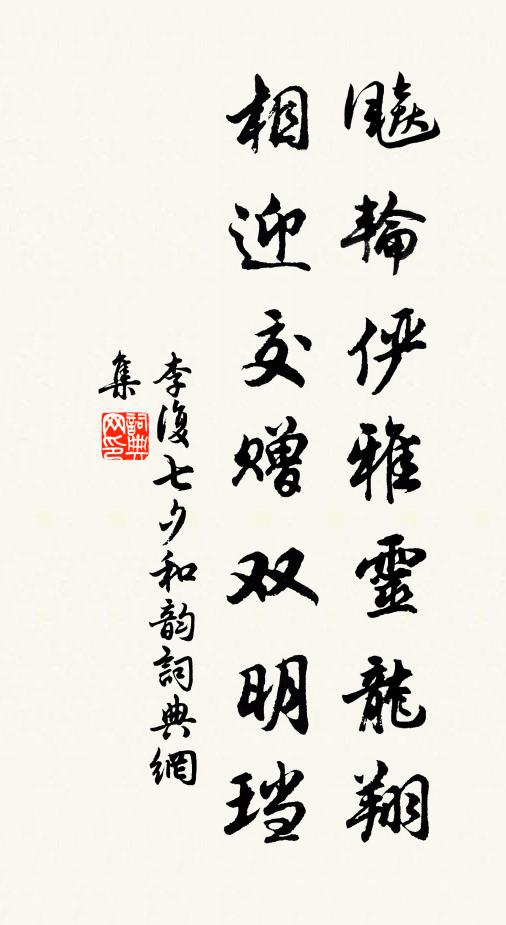 飚輪俨雅靈龍翔
相迎交赠双明珰
李復七夕和韵詞典網
集
詞典
网印